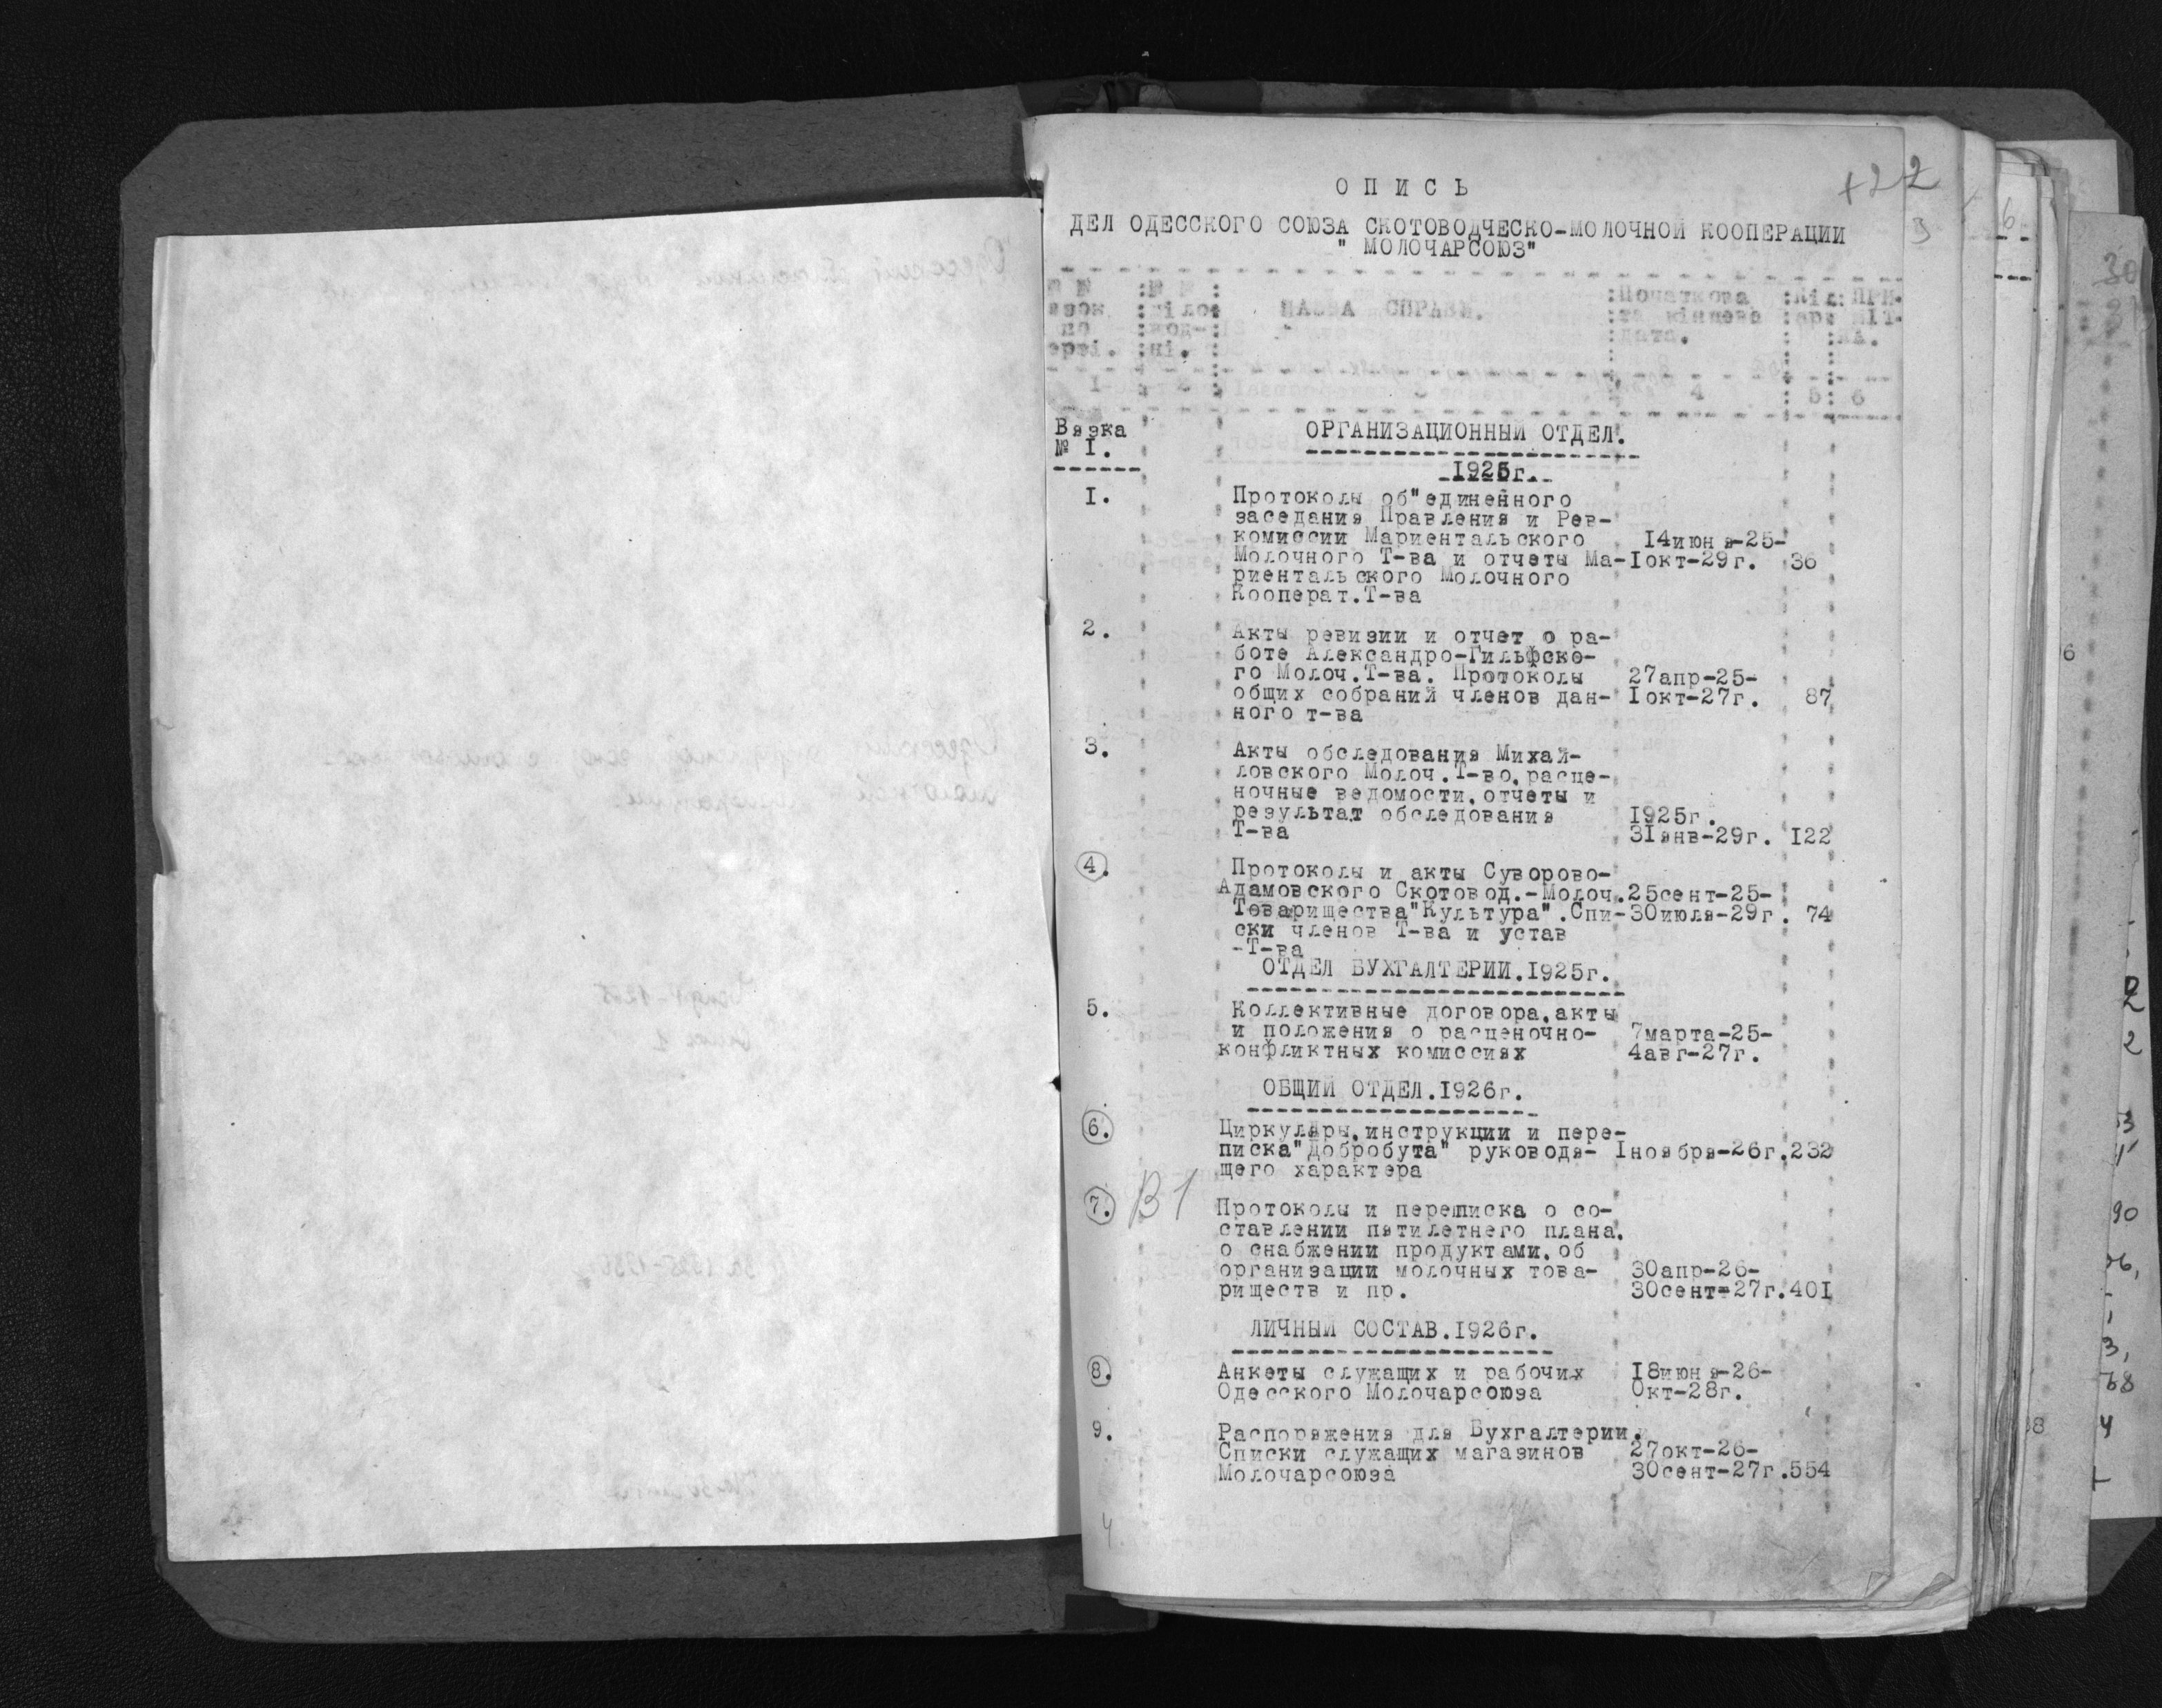 О П И С Ь
ДЕЛ ОДЕССКОГО СОЮЗА СКОТОВОДЧЕСКО-МОЛОЧНОЙ КООПЕРАЦИИ
" МОЛОЧАРСОЮЗ"
НАЗВА СПРАВИ.
Початкова
та кінцева
дата.
ПРИ-
МІТ-
ка.
1 2 3 4 5 6
Вязка
№ I.
ОРГАНИЗАЦИОННЫЙ ОТДЕЛ.
1925г.
I. Протоколы об"единенного
заседания Правления и Рев-
комиссии Мариентальского 14июня-25-
Молочного Т-ва и отчеты Ма- Iокт-29г. 36
риентальского Молочного
Кооперат.Т-ва
2. Акты ревизии и отчет о ра-
боте Александро-Гильфско-
го Молоч.Т-ва. Протоколы 27апр-25-
общих собраний членов дан- Iокт-27г. 87
ного т-ва
3. Акты обследования Михай-
ловского Молоч.Т-во,расце-
ночные ведомости,отчеты и
результат обследования 1925г.
Т-ва 31янв-29г. 122
4. Протоколы и акты Суворово-
Адамовского Скотовод.-Молоч. 25сент-25-
Товарищества"Культура".Спи- 30июля-29г. 74
ски членов Т-ва и устав
-Т-ва
ОТДЕЛ БУХГАЛТЕРИИ.1925г.
5. Коллективные договора,акты
и положения о расценочно- 7марта-25-
конфликтных комиссиях 4авг-27г.
ОБЩИЙ ОТДЕЛ.1926г.
6. Циркуляры,инструкции и пере-
писка"Добробута" руководя- Iноября-26г. 232
щего характера
7. В 1 Протоколы и переписка о со-
ставлении пятилетнего плана,
о снабжении продуктами,об
организации молочных това- 30апр-26-
риществ и пр. 30сент-27г. 401
ЛИЧНЫЙ СОСТАВ.1926г.
8. Анкеты служащих и рабочих 18июня-26-
Одесского Молочарсоюза Окт-28г.
9. Распоряжения для Бухгалтерии.
Списки служащих магазинов 27окт-26-
Молочарсоюза 30сент-27г. 554